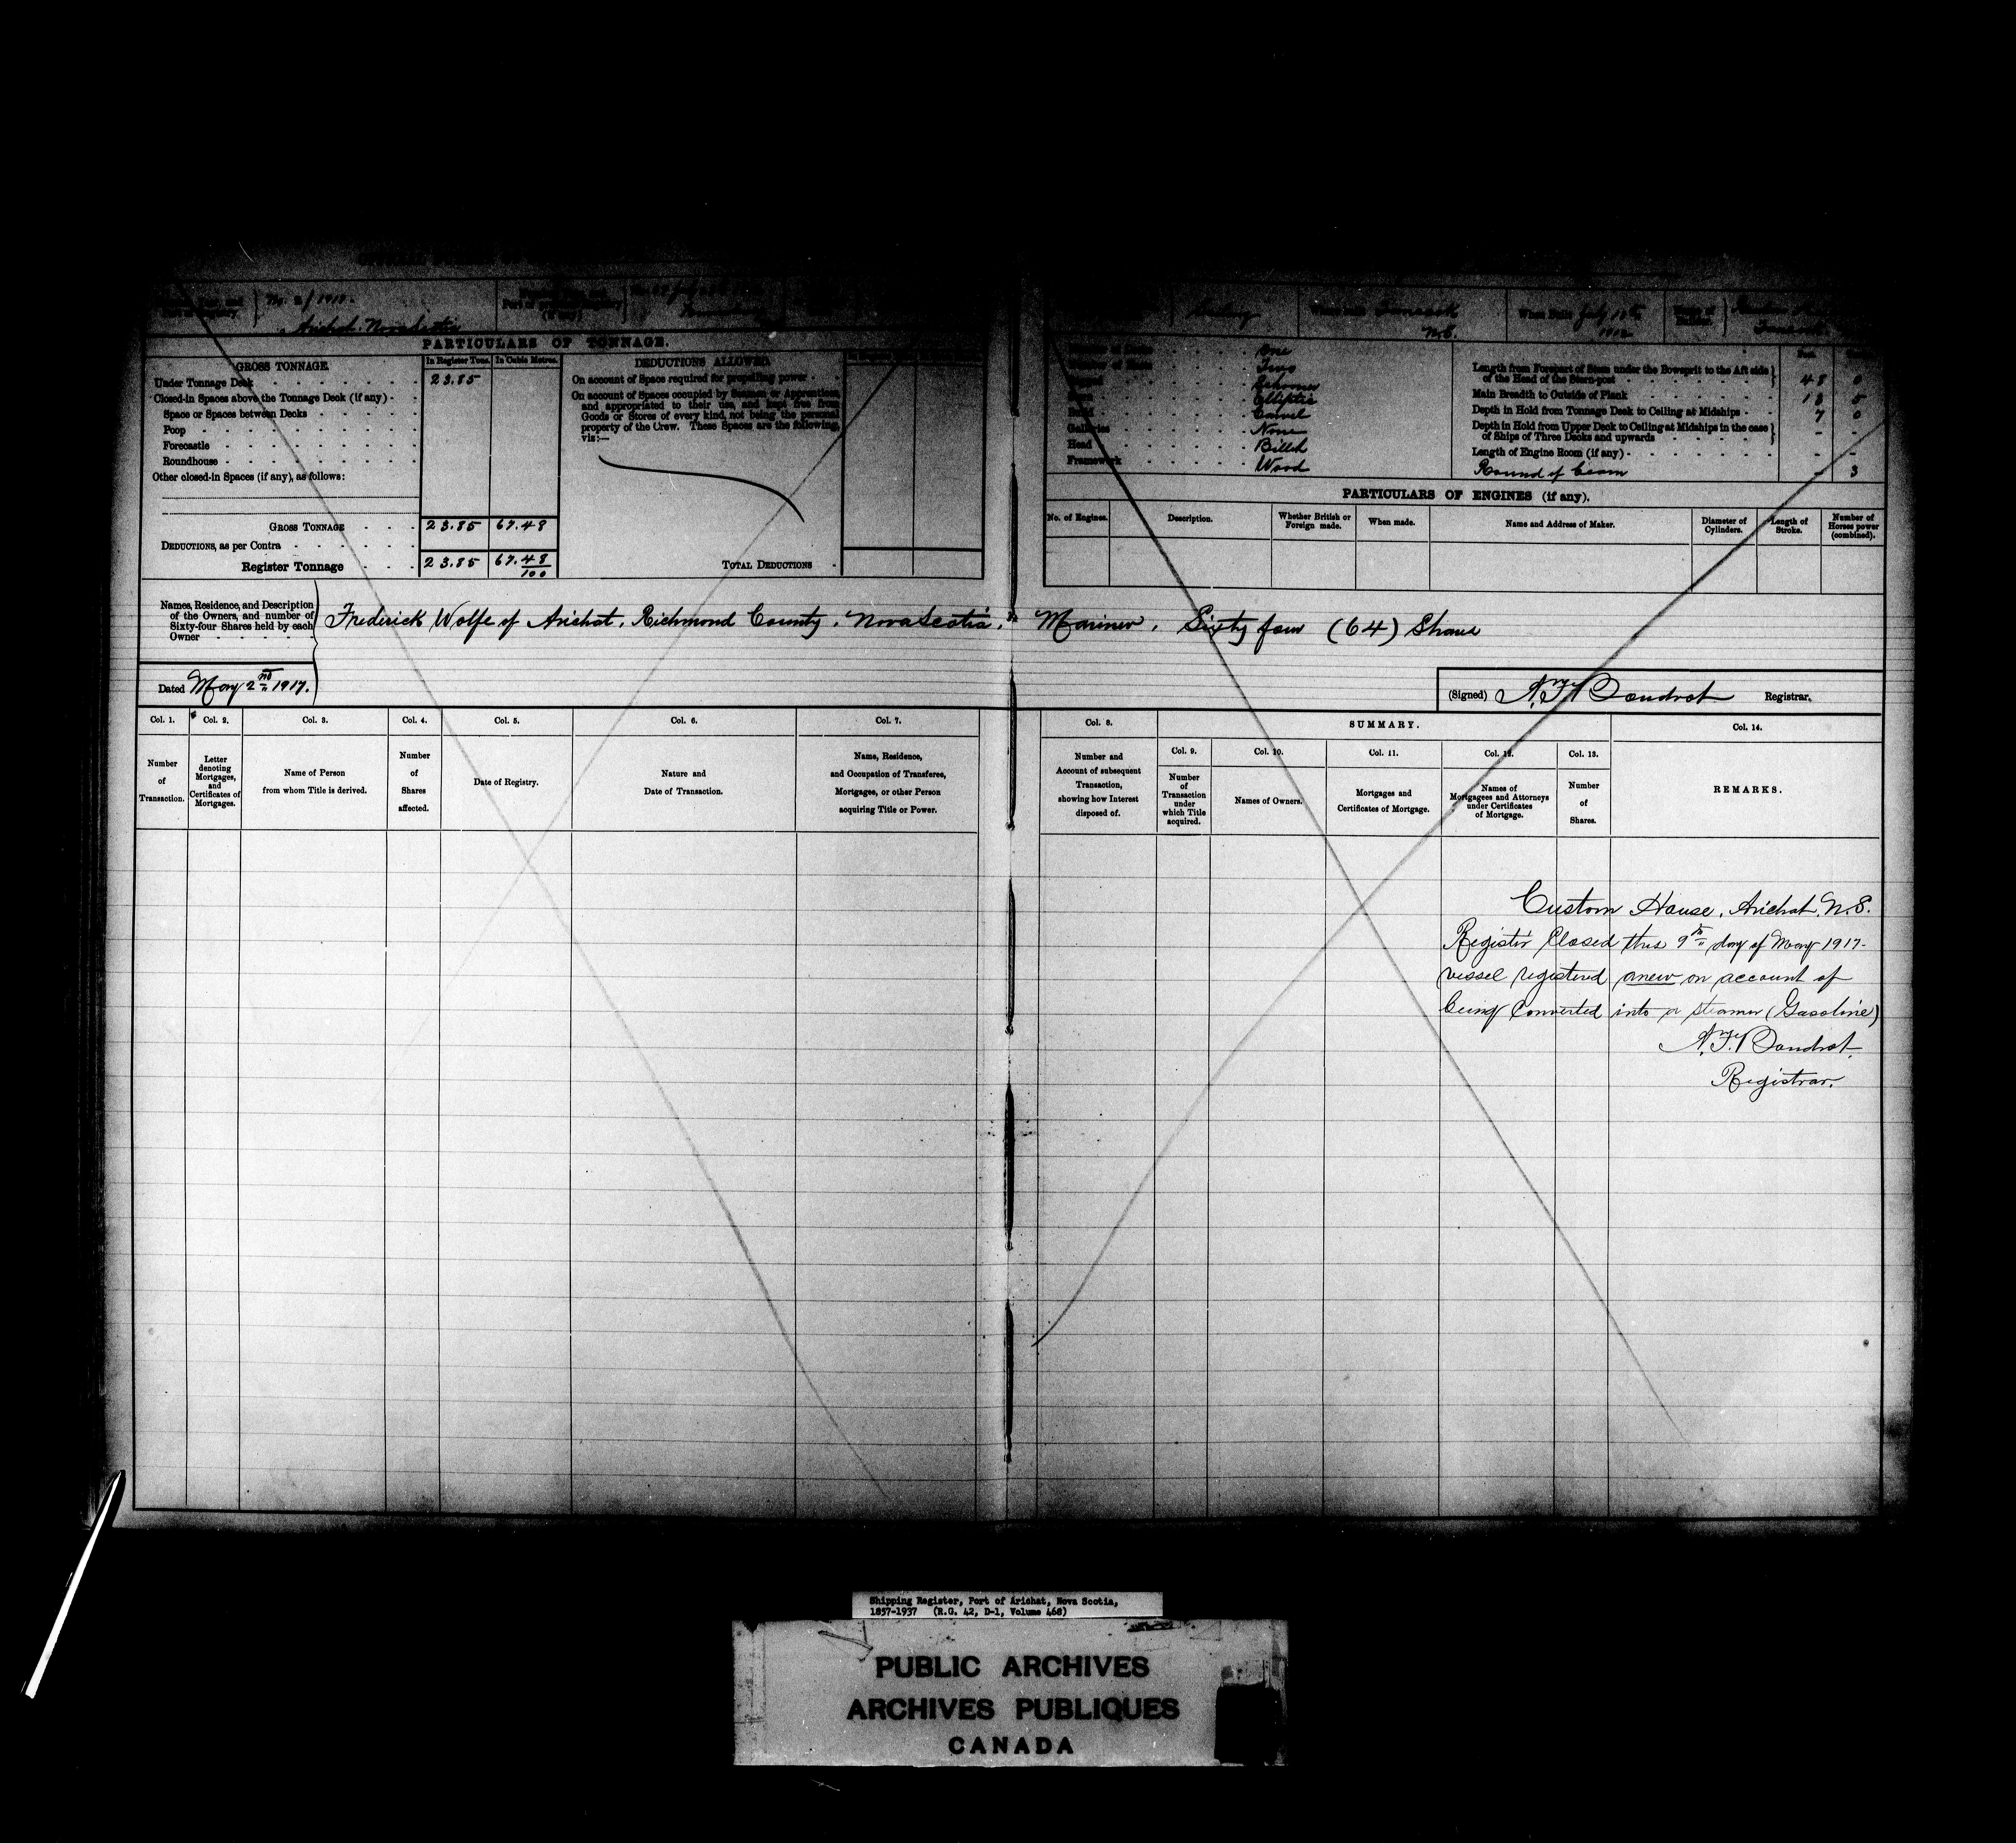 No. 2/1917.
Arichat. Nova Scotia
Sailing
Where Built
N.S.
When Built July 10th
1912
PARTICULARS OF TONNAGE.
GROSS TONNAGE
In Register Tons. In Cubic Metres.
Under Tonnage Deck 23.85
Closed-in Spaces above the Tonnage Deck (if any)
Space or Spaces between Decks
Poop
Forecastle
Roundhouse
Other closed-in Spaces (if any), as follows:
GROSS TONNAGE 23.85 67.48
DEDUCTIONS, as per Contra
Register Tonnage 23.85 67.48/100
DEDUCTIONS ALLOWED
On account of Space required for propelling power
On account of Spaces occupied by Seamen or Apprentices,
and appropriated to their use, and kept free from
Goods or Stores of every kind, not being the personal
property of the Crew. These Spaces are the following,
viz:—
TOTAL DEDUCTIONS
One
Two
Rigged Schooner
Elliptic
Build Carvel
Galleries None
Head Billet
Framework Wood
Length from Forepart of Stem under the Bowsprit to the Aft side
of the Head of the Stern-post 48 0
Main Breadth to Outside of Plank 18 5
Depth in Hold from Tonnage Deck to Ceiling at Midships 7 0
Depth in Hold from Upper Deck to Ceiling at Midships in the case
of Ships of Three Decks and upwards - -
Length of Engine Room (if any) - -
Round of beam - 3
PARTICULARS OF ENGINES (if any).
No. of Engines.
Description.
Whether British or
Foreign made.
When made.
Name and Address of Maker.
Diameter of
Cylinders.
Length of
Stroke.
Number of
Horses power
(combined).
Names, Residence, and Description
of the Owners, and number of
Sixty-four Shares held by each
Owner
Frederick Wolfe of Arichat, Richmond County, Nova Scotia, Mariner, Sixty four (64) Shares
Dated May 2nd 1917.
(Signed) Registrar.
Col. 1.
Number
of
Transaction.
Col. 2.
Letter
denoting
Mortgages,
and
Certificates of
Mortgages.
Col. 3.
Name of Person
from whom Title is derived.
Col. 4.
Number
of
Shares
affected.
Col. 5.
Date of Registry.
Col. 6.
Nature and
Date of Transaction.
Col. 7.
Name, Residence,
and Occupation of Transferee,
Mortgagee, or other Person
acquiring Title or Power.
Col. 8.
Number and
Account of subsequent
Transaction,
showing how Interest
disposed of.
SUMMARY.
Col. 9.
Number
of
Transaction
under
which Title
acquired.
Col. 10.
Names of Owners.
Col. 11.
Mortgages and
Certificates of Mortgage.
Col. 12.
Names of
Mortgagees and Attorneys
under Certificates
of Mortgage.
Col. 13.
Number
of
Shares.
Col. 14.
REMARKS.
Custom House, Arichat, N.S.
Register Closed this 9th day of May 1917-
vessel registered anew on account of
being converted into a steamer (Gasoline)
Registrar.
Shipping Register, Port of Arichat, Nova Scotia,
1857-1937 (R.G. 42, D-1, Volume 468)
PUBLIC ARCHIVES
ARCHIVES PUBLIQUES
CANADA